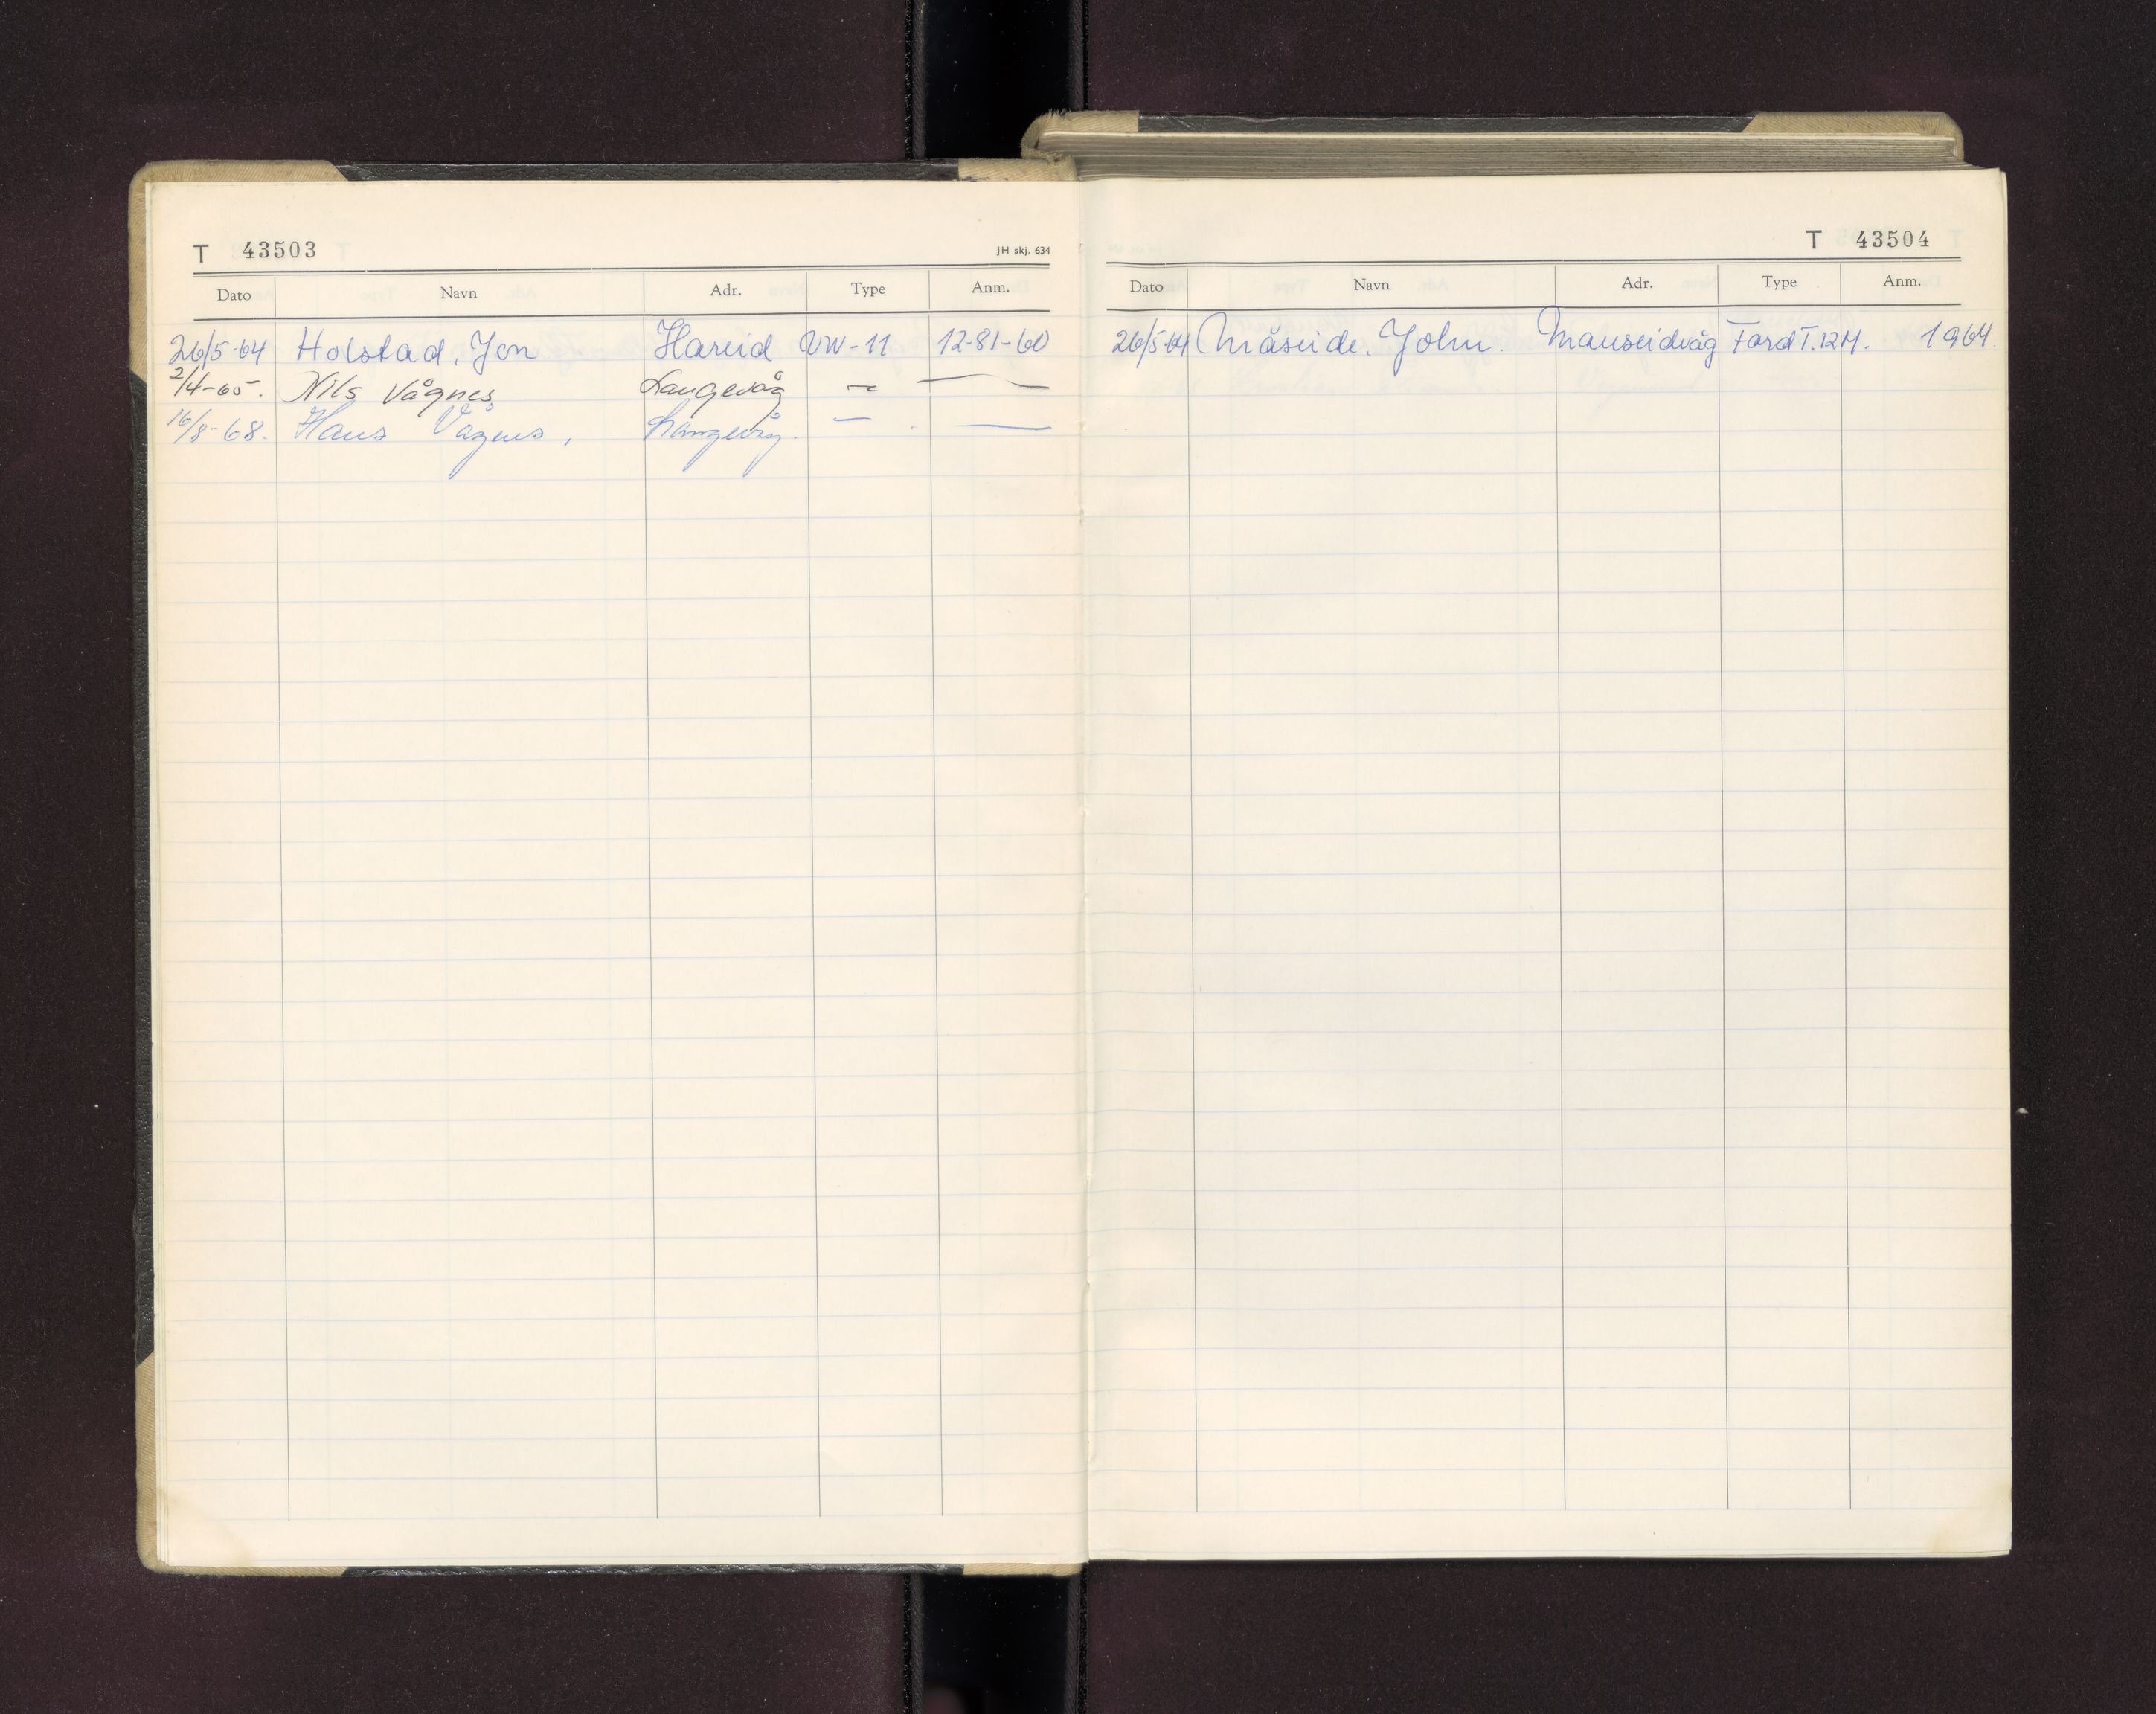 T 43503 JH skj. 634
Dato Navn Adr. Type Anm.
26/5-64 Holstad, Jon Hareid VW-11 12-81-60
2/4-65. Nils Vågnes Langevåg — —
16/8-68. Hans Vågnes, Langevåg. — —
T 43504
Dato Navn Adr. Type Anm.
26/5-64 Måseide, John. Mauseidvåg Ford T.12M. 1964.